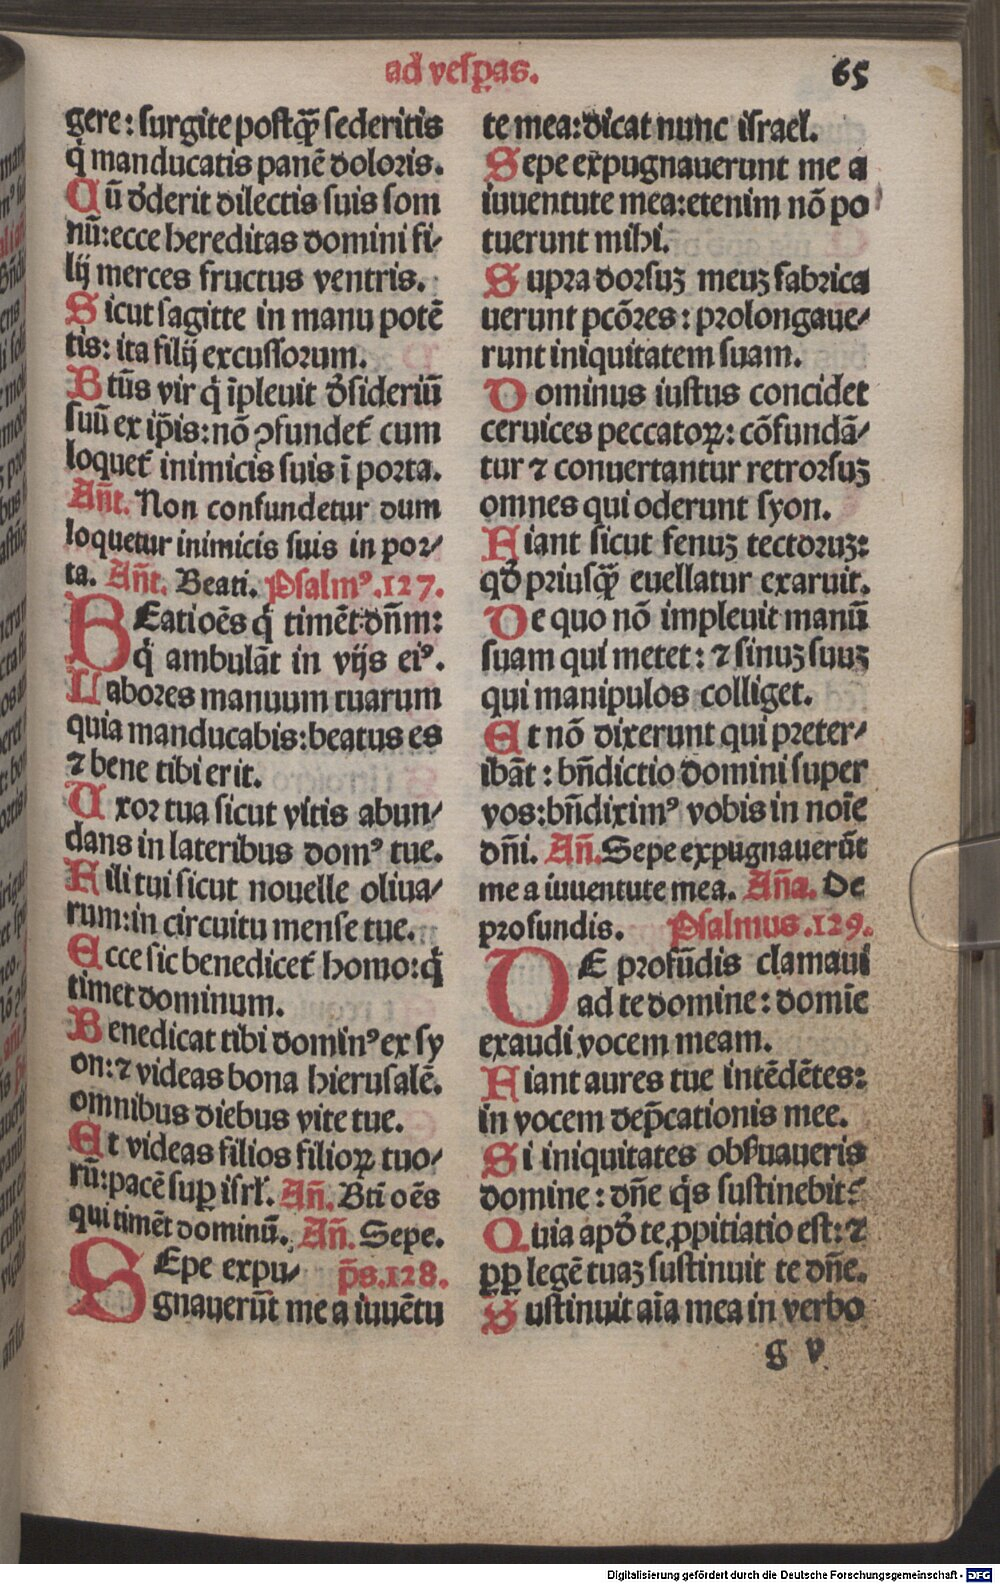 ad vesꝑas.
65
gere: surgite postꝙ̃ sederitis
q̇ manducatis panē doloris.
Cū ꝺderit dilectis suis som
nū: ecce hereditas domini fi-
lij merces fructus ventris.
Sicut sagitte in manu potē
tis: ita filij excussorum.
Btūs vir q̇ īpleuit ꝺ̄sideriū
suū ex ip̄is: nō ꝯfundet᷑ cum
loquet᷑ inimicis suis ī porta.
Añt. Non confundetur dum
loquetur inimicis suis in por-
ta. Añt. Beati. Psalmꝰ .127.
BEati oēs q̇ timēt dñm:
q̇ ambulāt in vijs eiꝰ.
Labores manuum tuarum
quia manducabis: beatus es
⁊ bene tibi erit.
Uxor tua sicut vitis abun-
dans in lateribus domꝰ tue.
Filij tui sicut nouelle oliua-
rum: in circuitu mense tue.
Ecce sic benedicet᷑ homo: q̇
timet dominum.
Benedicat tibi dominꝰ ex sy
on: ⁊ videas bona hierusalē.
omnibus diebus vite tue.
Et videas filios filioꝝ tuo-
rū: pacē suꝑ isrł. Añ. Bti oēs
qui timēt dominū. Añ. Sepe.
SEpe expu- p̄s.128.
gnauerūt me a iuuētu
te mea: dicat nunc israel.
Sepe expugnauerunt me a
iuuentute mea: etenim nō po
tuerunt mihi.
Supra dorsuꝫ meuꝫ fabrica
uerunt pcōres: prolongaue-
runt iniquitatem suam.
Dominus iustus concidet
ceruices peccatoꝝ: cōfundā-
tur ⁊ conuertantur retrorsuꝫ
omnes qui oderunt syon.
Fiant sicut fenuꝫ tectoruꝫ:
qꝺ̄ priusꝙ̃ euellatur exaruit.
De quo nō impleuit manū
suam qui metet: ⁊ sinuꝫ suuꝫ
qui manipulos colliget.
Et nō dixerunt qui preter-
ibāt: bñdictio domini super
vos: bñdiximꝰ vobis in noīe
dñi. Añ. Sepe expugnauerūt
me a iuuentute mea. Aña. De
profundis. Psalmus .129.
DE profūdis clamaui
ad te domine: domīe
exaudi vocem meam.
Fiant aures tue intēdētes:
in vocem dep̄cationis mee.
Si iniquitates obẜuaueris
domine: dñe q̇s sustinebit?
Quia apꝺ̄ te ꝓpitiatio est: ⁊
ꝓpꝑ legē tuaꝫ sustinuit te dñe.
Sustinuit aīa mea in verbo
g v
Digitalisierung gefördert durch die Deutsche Forschungsgemeinschaft - DFG